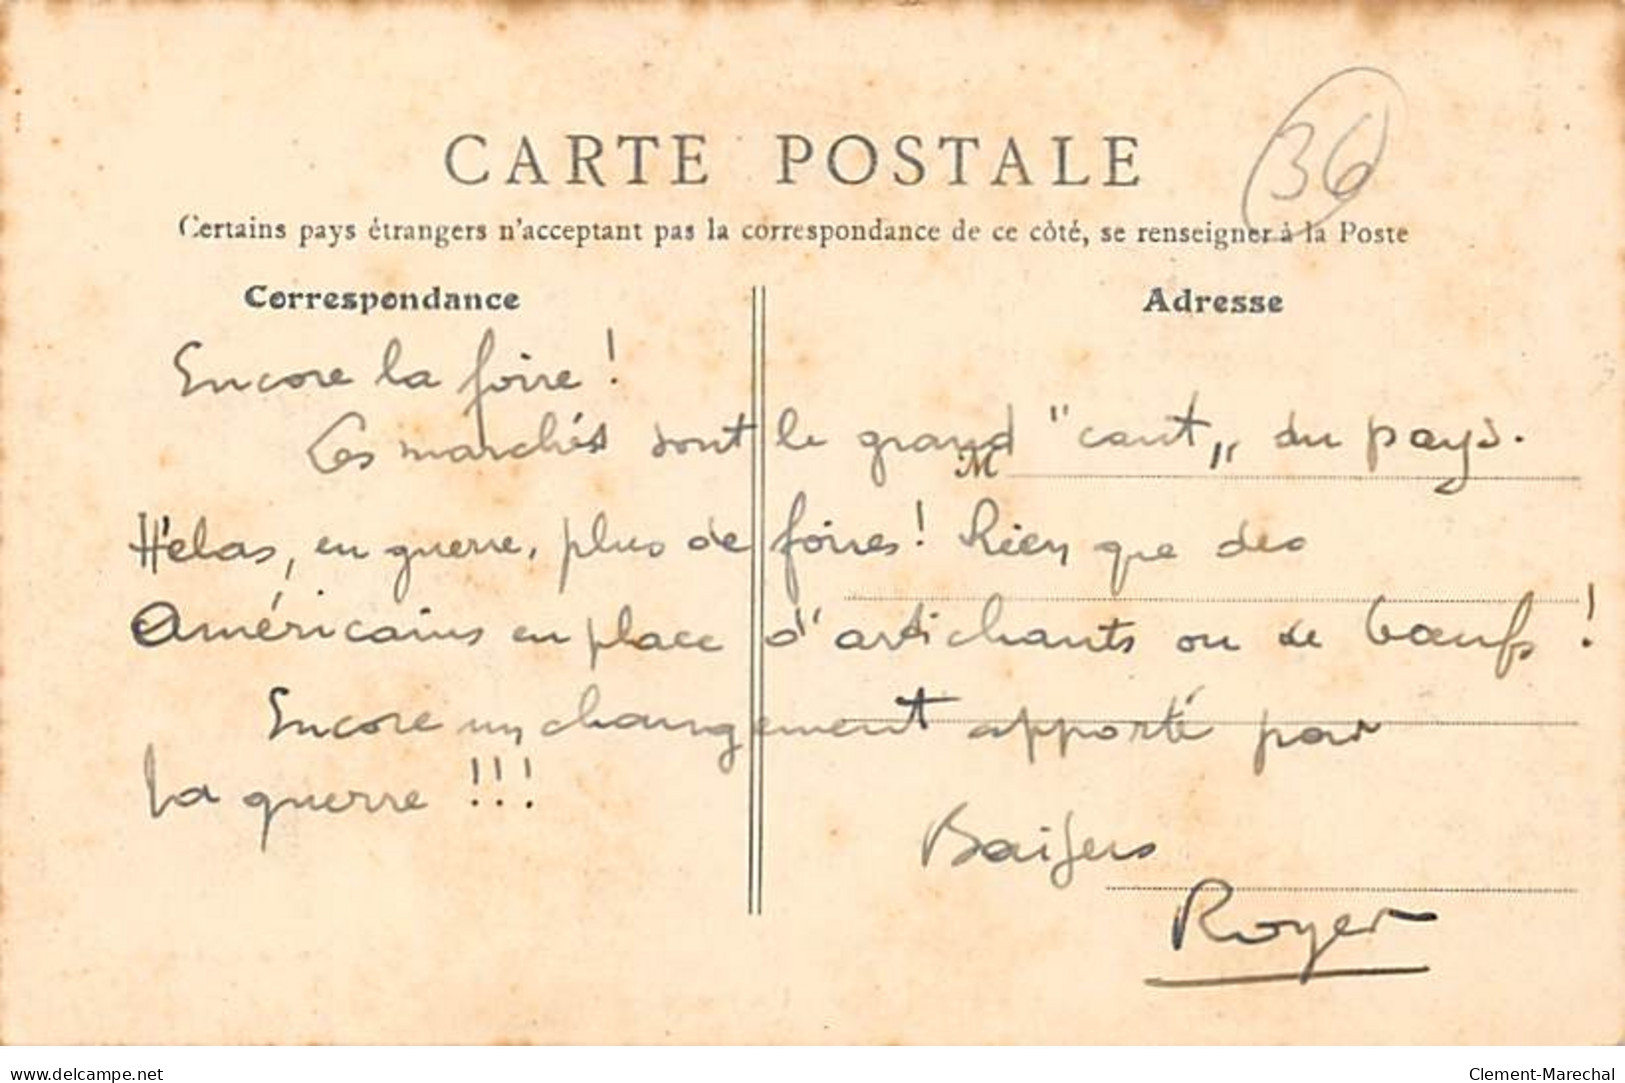 36
CARTE POSTALE
Certains pays étrangers n'acceptant pas la correspondance de ce côté, se renseigner à la Poste
Correspondance
Adresse
Encore la foire !
Les marchés sont le grand "cant„ du pays.
M
Hélas, en guerre, plus de foires ! Rien que des
Américains en place d'artichants ou de bœufs !
Encore un changement apporté par
la guerre !!!
Baisers
Royer
www.delcampe.net
Clement-Marechal